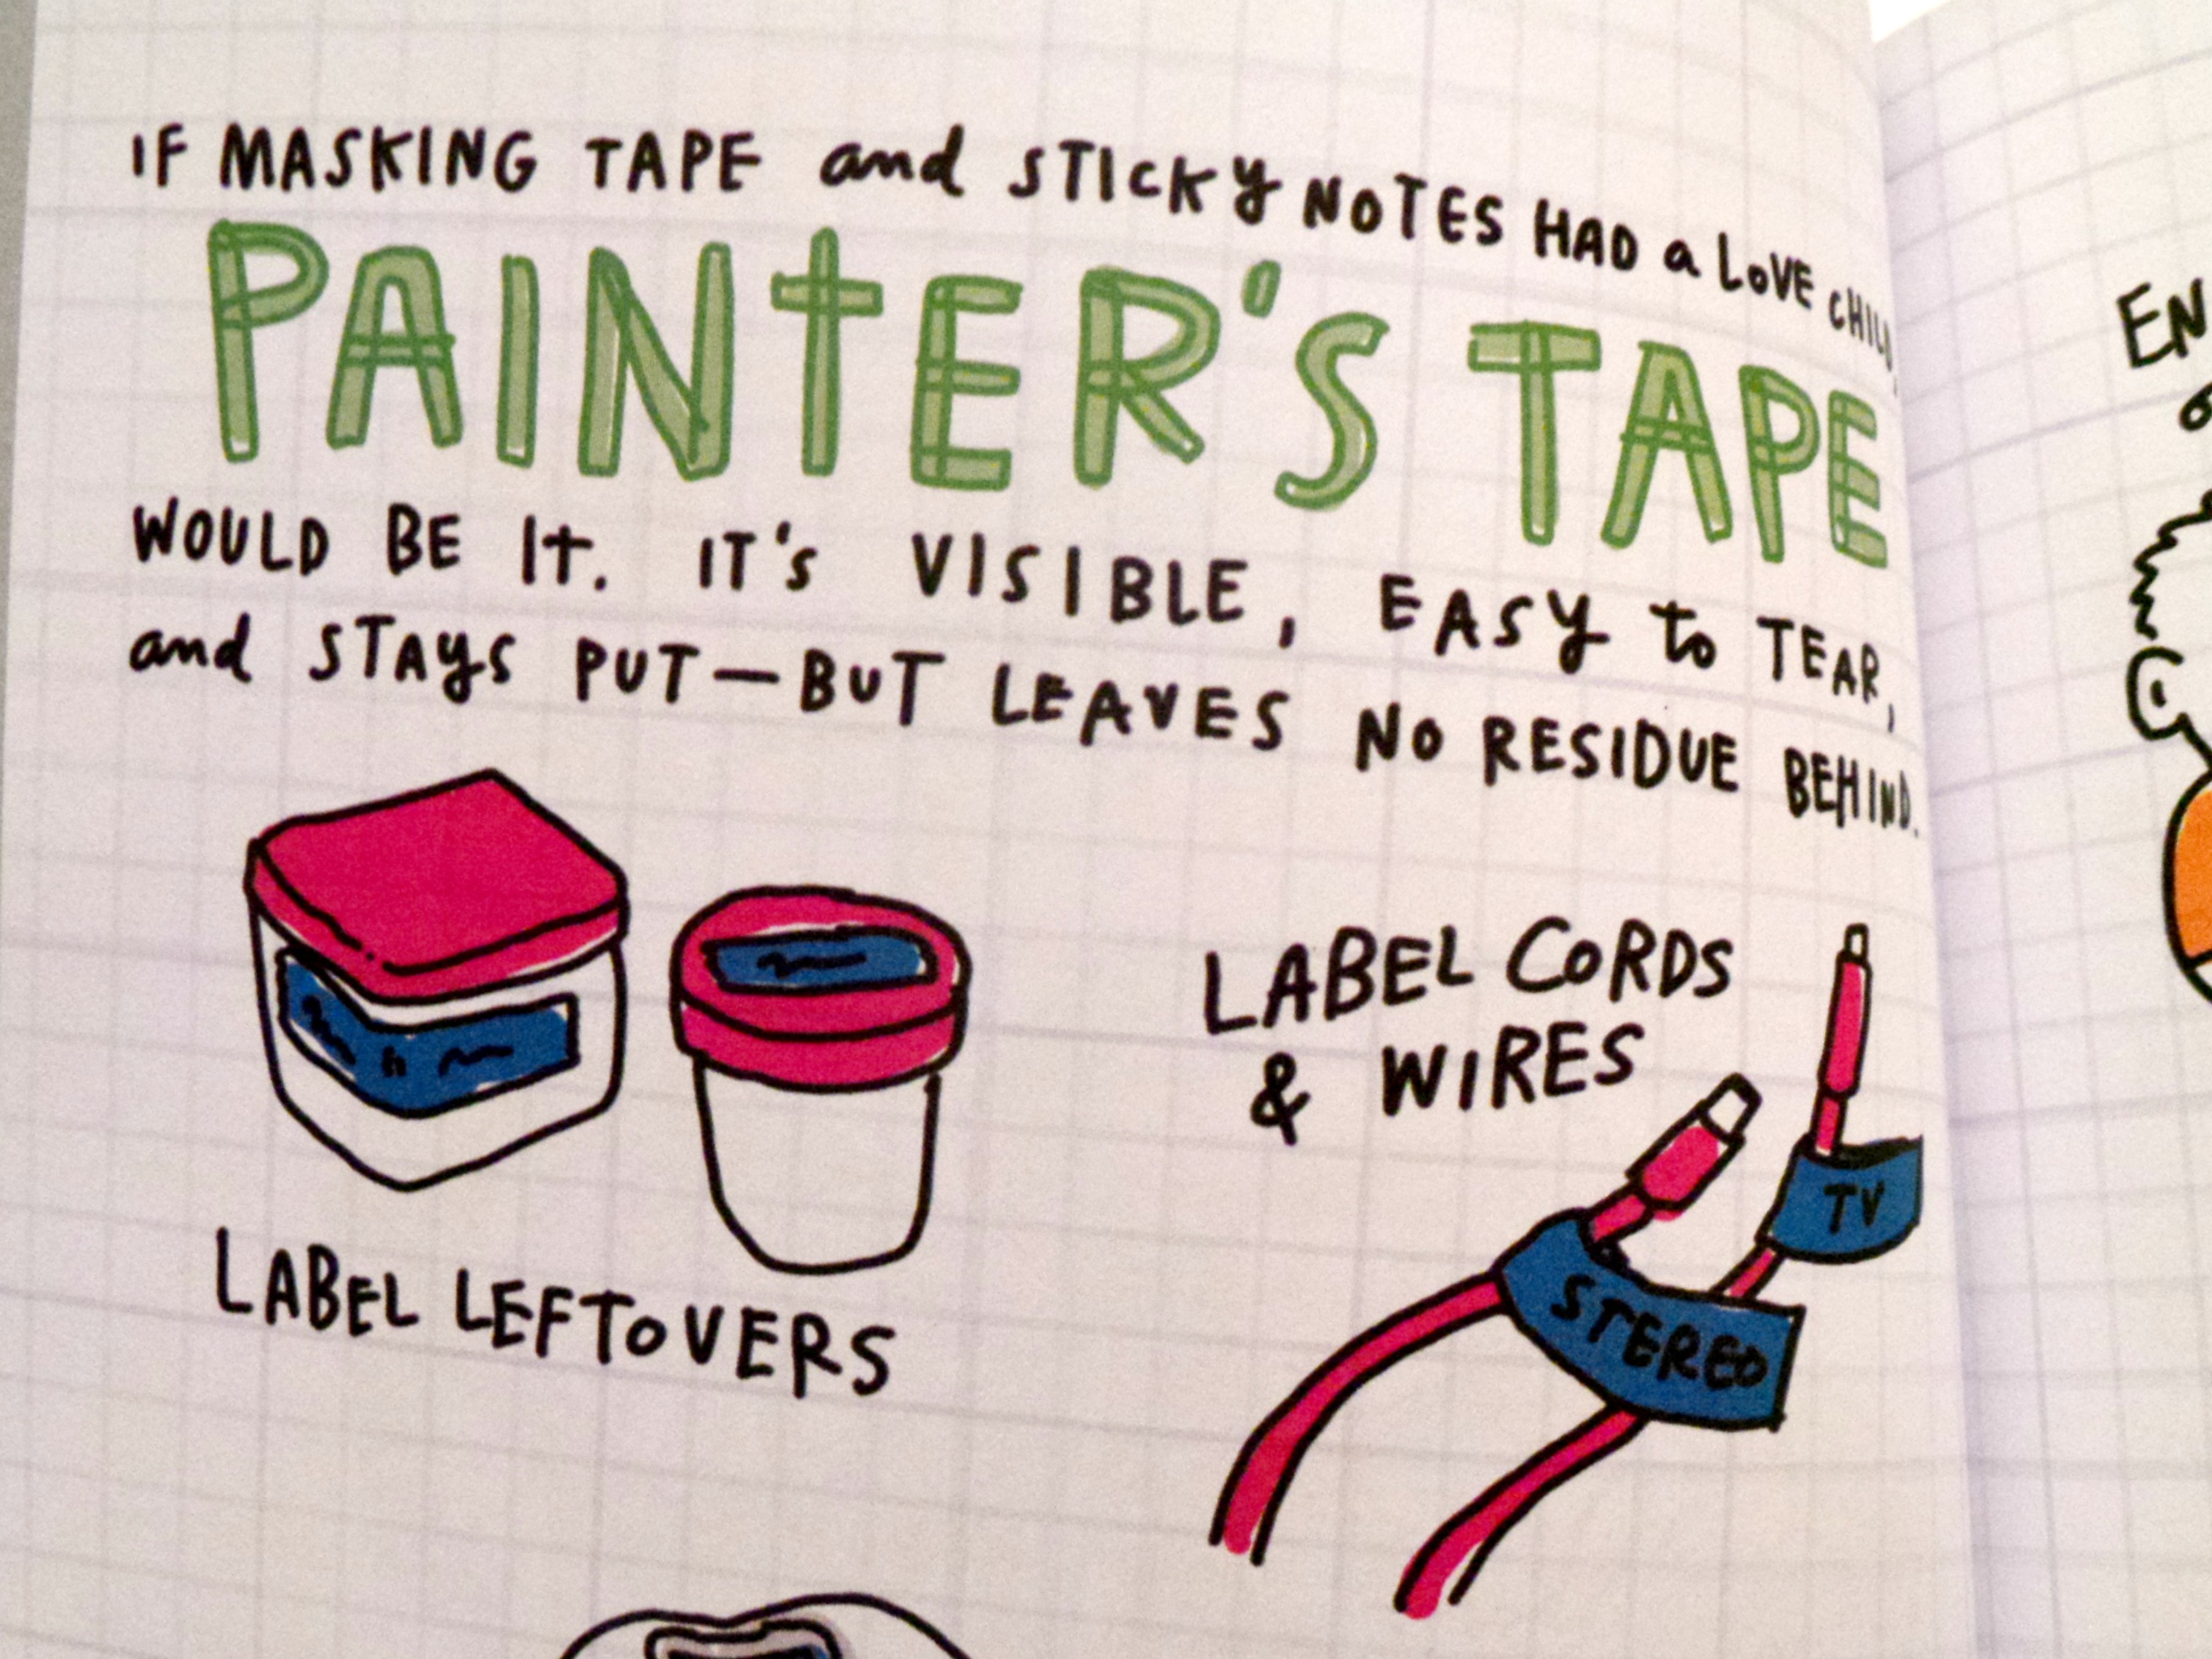 IF MASKING TAPE and STICKY NOTES HAD a LOVE CHILD,
PAINTER'S TAPE
WOULD BE It. IT'S VISIBLE, EASY to TEAR,
and STAYS PUT—BUT LEAVES NO RESIDUE BEHIND.
LABEL CORDS
& WIRES
TV
STEREO
LABEL LEFTOVERS